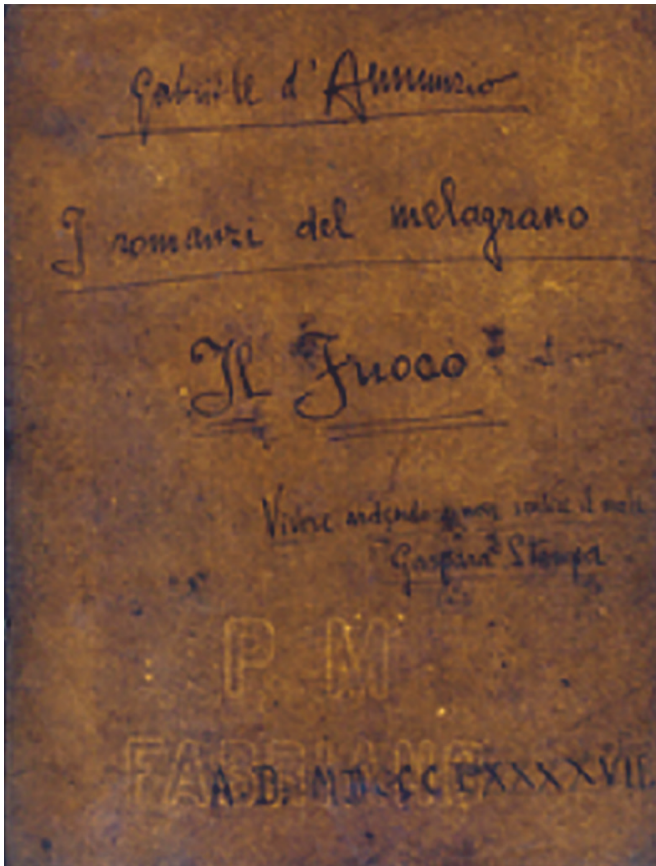 Gabriele d'Annunzio
I romanzi del melagrano
Il Fuoco
Vivere ardendo e non sentire il male
Gaspara Stampa
P M
FABRIANO
A. D. MDCCCLXXXXVII.